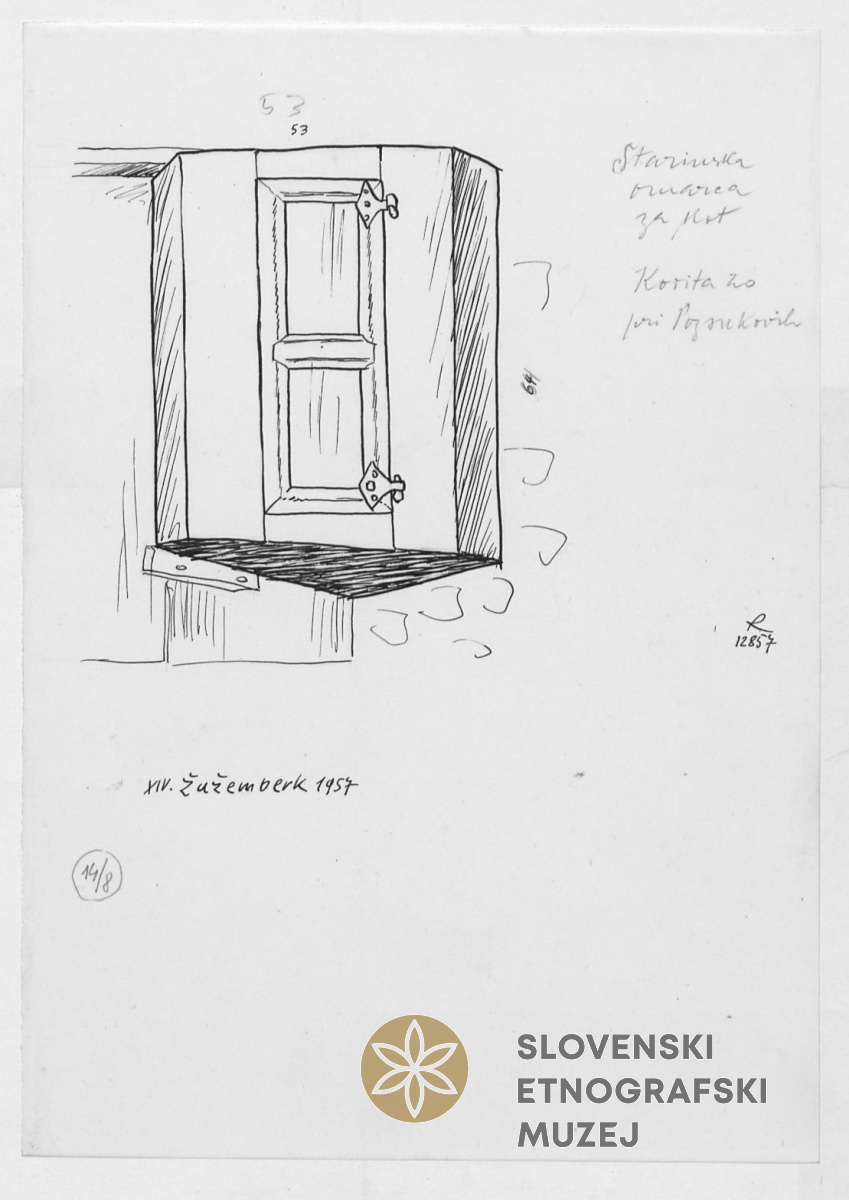 53
53
Starinska
omarca
za kot
Korita 20
pri
64
R
12857
XIV. Žužemberk 1957
14/8
SLOVENSKI
ETNOGRAFSKI
MUZEJ